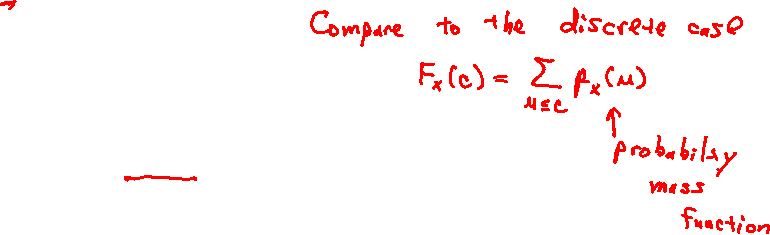 Compare to the discrete case
F_X(c) = ∑_{u≤c} p_X(u)
↑
probability
mass
function